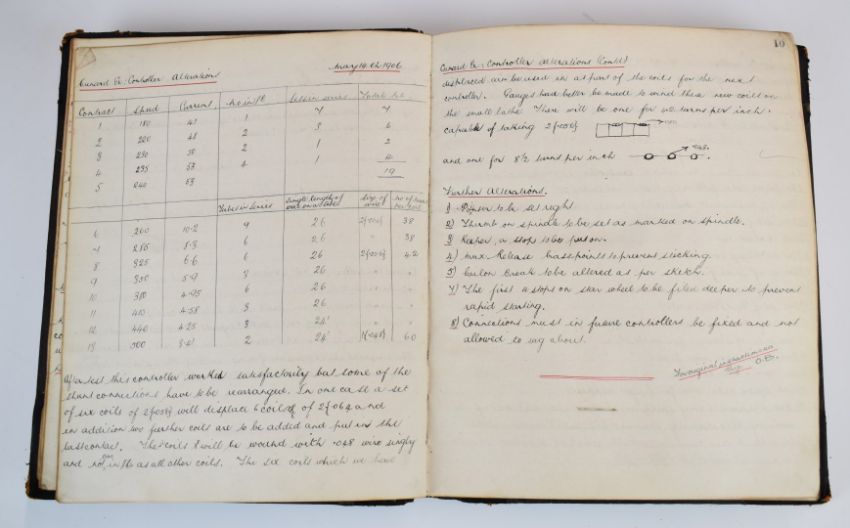 May 14th 1906
Cunard Co: Controller Alterations
Contract Speed Current No in
1 180 1
2 220 48 2 3 6
3 230 2 1 2
4 235 53 4 1
5 240 53 19
Tubes in Series Single length of No of turns
6 260 10.2 9 26 38
7 285 6 26 38
8 325 6.6 6 26 42
9 350 5.9 3 26 "
10 380 4.95 6 26 "
11 410 4.58 3 26 "
12 440 4.25 3 24" "
13 500 2 24" 60
After test this controller worked satisfactorily but some of the
shunt connections have to be rearranged. In one case a set
of six coils of will displace 6 coils of and
in addition two further coils are to be added and put in the
last contact. These coils will be wound with .048 wire singly
and not in as all other coils. The six coils which we have
10
Cunard Co: Controller Alterations (Contd)
displaced can be used in as part of the coils for the next
controller. Gauges had better be made to wind these new coils on
the small lathe. There will be one for turns per inch.
capable of taking
and one for 8½ turns per inch
Further Alterations.
1) to be set right
2) Thermt on spindle to be set as marked on spindle.
3) Keeper, a stop to be put on.
4) Max. Release brass points to prevent sticking.
5) Carbon break to be altered as per sketch.
7) The first 2 stops on star wheel to be filed deeper to prevent
rapid starting.
8) Connections must in future controllers be fixed and not
allowed to wag about.
O.B.